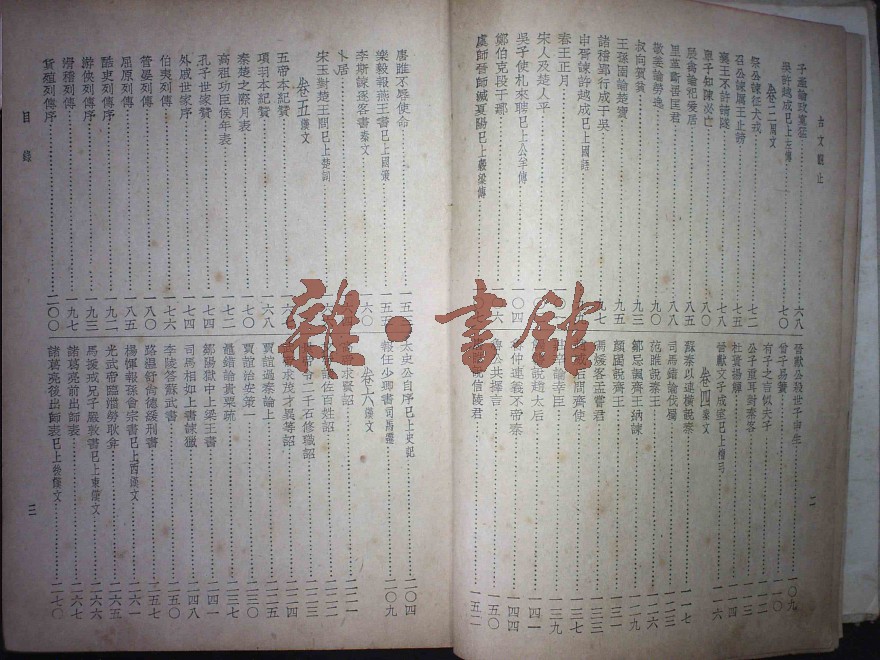 古文觀止
二
子產論政寬猛 六八
吳許越成已上左傳 七〇
卷三周文
祭公諫征犬戎 七二
召公諫厲王止謗
襄王不許請隧
單子知陳必亡 八〇
展禽論祀爰居 八五
里革斷罟匡君 八八
敬姜論勞逸 九〇
叔向賀貧
王孫圉論楚寶 九五
諸稽郢行成于吳 九七
申胥諫許越成已上國語
春王正月
宋人及楚人平
吳子使札來聘已上公羊傳 一〇四
鄭伯克段于鄢
虞師晉師滅夏陽已上穀梁傳
晉獻公殺世子申生 一〇九
曾子易簀 一一〇
有子之言似夫子 一一二
公子重耳對秦客 一一三
杜蕢揚觶 一一四
晉獻文子成室已上檀弓 一一六
卷四秦文
蘇秦以連橫說秦 一一七
司馬錯論伐蜀 一二三
范雎說秦王 一二六
鄒忌諷齊王納諫
顏斶說齊王
馮煖客孟嘗君 一三三
后問齊使
論幸臣 一三九
說趙太后 一四一
仲連義不帝秦 一四四
魯公共擇言 一五〇
說信陵君 一五二
唐雎不辱使命 一五
樂毅報燕王書已上國策 一五五
李斯諫逐客書秦文 一六〇
卜居
宋玉對楚王問已上楚詞
卷五漢文
五帝本紀贊
項羽本紀贊 一六八
秦楚之際月表
高祖功臣侯年表 一七二
孔子世家贊 一七四
外戚世家序 一七四
伯夷列傳 一七六
管晏列傳 一八〇
屈原列傳 一八五
酷吏列傳序 一九二
游俠列傳序 一九三
滑稽列傳 一九七
貨殖列傳序 二〇〇
太史公自序已上史記 二〇四
報任少卿書司馬遷 二〇九
卷六漢文
求賢詔 二二一
佐百姓詔 二二二
二千石修職詔 二二三
求茂才異等詔 二二四
賈誼過秦論上 二二五
賈誼治安策一 二三〇
鼂錯論貴粟疏 二三七
鄒陽獄中上梁王書 二四一
司馬相如上書諫獵 二四八
李陵答蘇武書 二五〇
路溫舒尚德緩刑書 二五七
楊惲報孫會宗書已上西漢文 二六一
光武帝臨淄勞耿弇 二六五
馬援戒兄子嚴敦書已上東漢文 二六六
諸葛亮前出師表
諸葛亮後出師表已上後漢文 二七〇
目錄
三
雜·書館